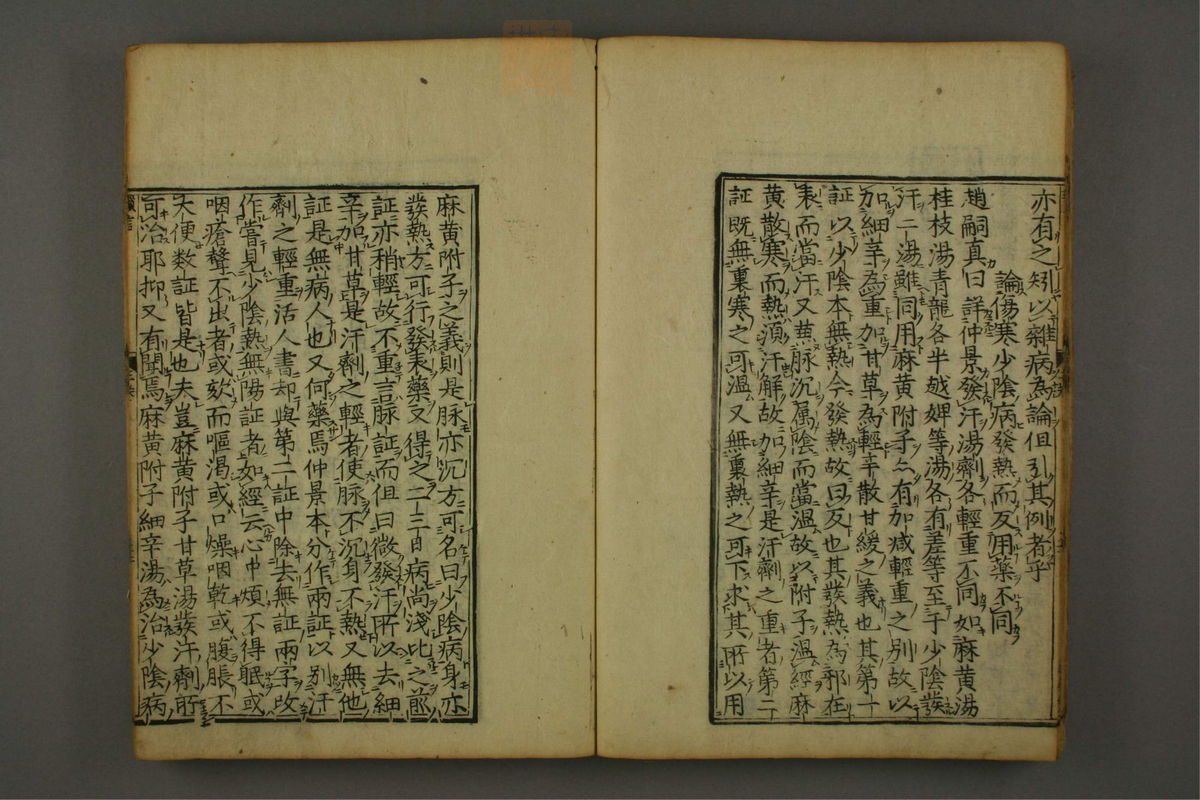 亦有之矧以雜病為論但引其例者乎
論傷寒少陰病發熱而反用藥不同
趙嗣真曰詳仲景發汗湯劑各輕重不同如麻黄湯
桂枝湯青龍各半越婢等湯各有差等至于少陰發
汗二湯雖同用麻黄附子亦有加减輕重之别故以
加細辛為重加甘草為輕辛散甘緩之義也其第一
証以少陰本無熱今發熱故曰反也其發熱為邪在
表而當汗又兼脉沉属陰而當温故以附子温經麻
黄散寒而熱須汗解故加細辛是汗劑之重者第二
証既無裏寒之可温又無裏熱之可下求其所以用
麻黄附子之義則是脉亦沉方可名曰少陰病身亦
發熱方可行發表藥又得之二三日病尚淺比之前
証亦稍輕故不重言脉証而但曰微發汗所以去細
辛加甘草是汗劑之輕者使脉不沉身不熱又無他
証是無病人也又何藥焉仲景本分作兩証以别汗
劑之輕重活人書却與第二証中除去無証兩字改
作嘗見少陰熱無陽証者如經云心中煩不得眠或
咽瘡聲不出者或欬而嘔渴或口燥咽乾或腹脹不
大便数証皆是也夫豈麻黄附子甘草湯發汗劑所
可治耶抑又有聞焉麻黄附子細辛湯為治少陰病